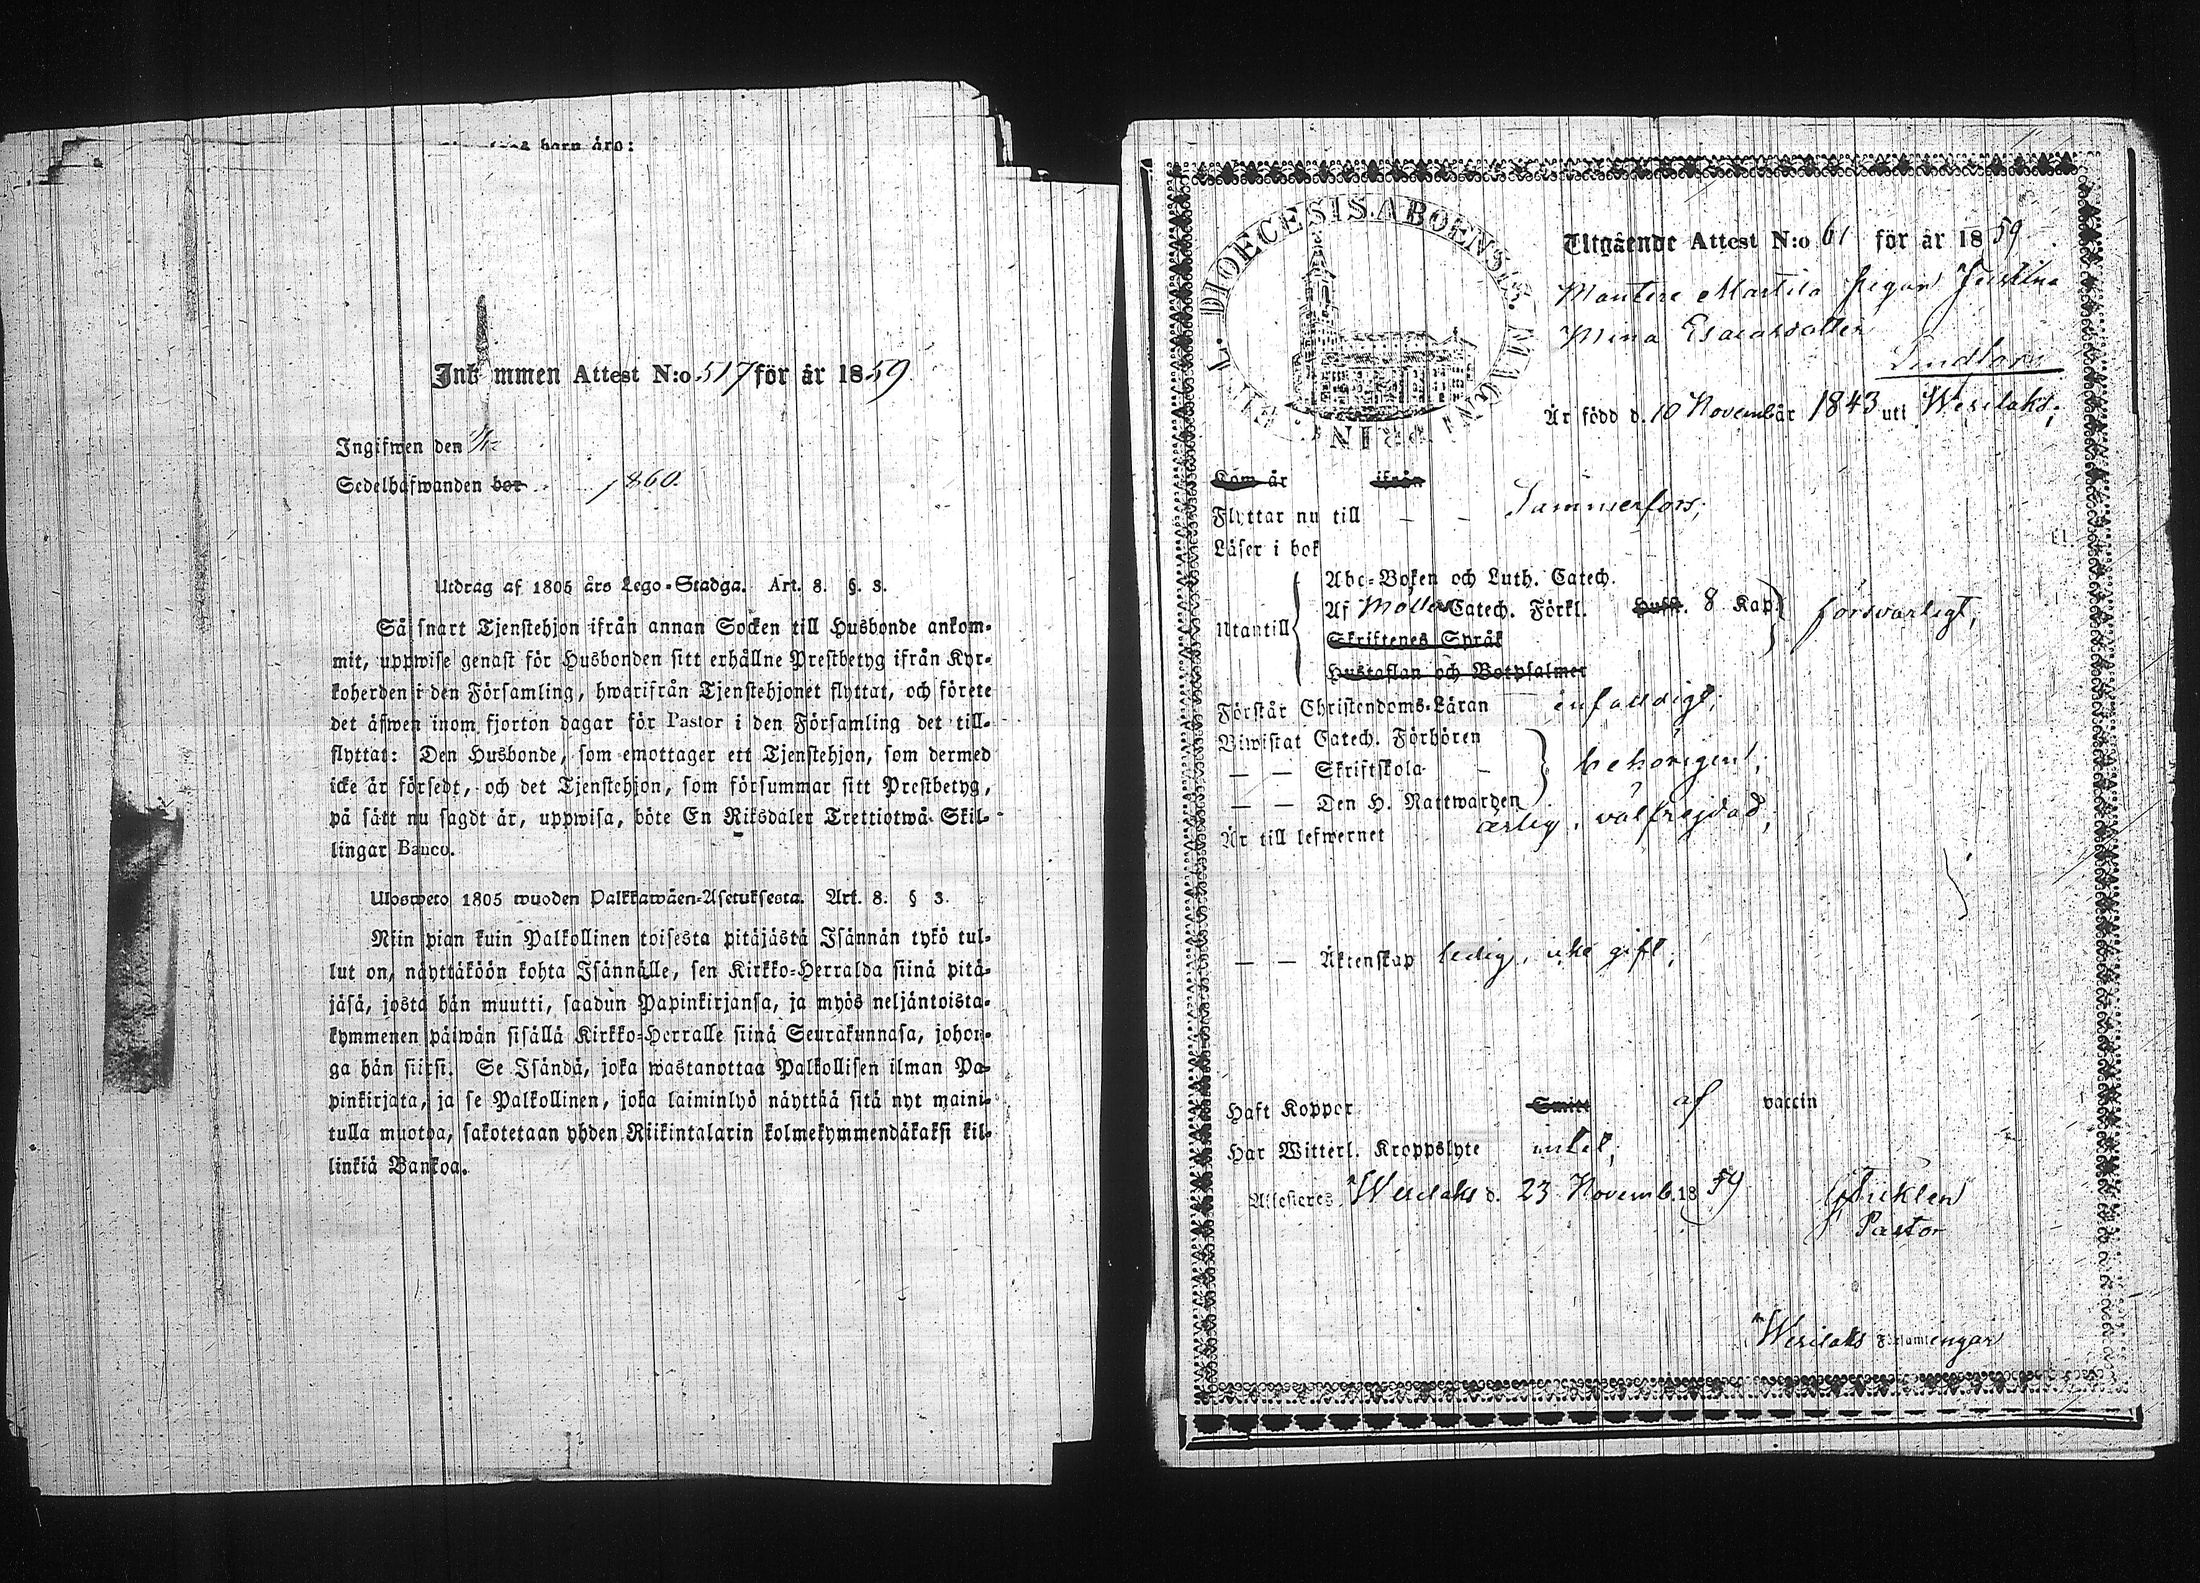 barn äro:
Inkommen Attest N:o 517 för år 1859.
Ingifwen den
Sedelhafwanden bor 1860.
Utdrag af 1805 års Lego-Stadga. Art. 8. §. 3.
Så snart Tjenstehjon ifrån annan Socken till Husbonde ankom-
mit, uppwise genast för Husbonden sitt erhållne Prestbetyg ifrån Kyr-
koherden i den Församling, hwarifrån Tjenstehjonet flyttat, och förete
det äfwen inom fjorton dagar för Pastor i den Församling det till-
flyttat: Den Husbonde, som emottager ett Tjenstehjon, som dermed
icke är försedt, och det Tjenstehjon, som försummar sitt Prestbetyg,
på sätt nu sagdt är, uppwisa, böte En Riksdaler Trettiotwå Skil-
lingar Banco.
Ulosweto 1805 wuoden Palkkawäen-Asetuksesta. Art. 8. § 3.
Niin pian kuin Palkollinen toisesta pitäjästä Isännän tykö tul-
lut on, näyttäköön kohta Isännälle, sen Kirkko-Herralda siinä pitä-
jäsä, josta hän muutti, saadun Papinkirjansa, ja myös neljäntoista-
kymmenen päiwän sisällä Kirkko-Herralle siinä Seurakunnasa, johon-
ga hän siirsi. Se Isändä, joka wastanottaa Palkollisen ilman Pa-
pinkirjata, ja se Palkollinen, joka laiminlyö näyttää sitä nyt maini-
tulla muotoa, sakotetaan yhden Riikintalarin kolmekymmendäkaksi kil-
linkiä Bankoa.
DIOECESIS. ABOENSIS. MAGN. PRINC. FINL.
Utgående Attest N:o 61 för år 1859
Mantere Martila pigan Justina
Mina Esaiasdotter
Lindlov
Är född d. 10 November 1843 uti Wesilaks;
Kom år ifrån
Flyttar nu till — — Tammerfors;
Läser i bok
Utantill
Abc-Boken och Luth. Catech.
Af Möllers Catech. Förkl. Hufst. 8 Kap. försvarligt,
Skriftenes Språk
Hustaflan och Botpsalmer
Förstår Christendoms-Läran enfalldigt;
Biwistat Catech. Förhören
— — Skriftskola — behörigent;
— — Den H. Nattwarden
Är till lefwernet ärlig, välfrejdad,
— — Äktenskap ledig, icke gift;
Haft Koppor Smitt af vaccin
Har Witterl. Kroppslyte intet,
Attesteres Wesilaks d. 23 Novemb. 1859
Pastor
Wesilaks Församlingar